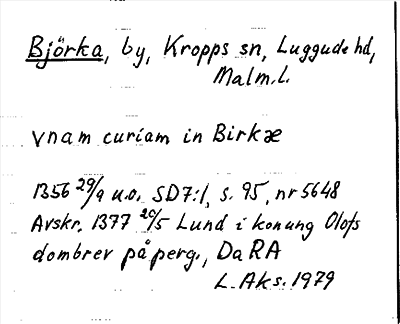 Björka, by, Kropps sn, Luggude hd,
Malm.l.
vnam curiam in Birkæ
1356 29/9 u.o. SD7:1, s. 95, nr 5648
Avskr. 1377 20/5 Lund i konung Olofs
dombrev på perg., DaRA
L. Aks. 1979